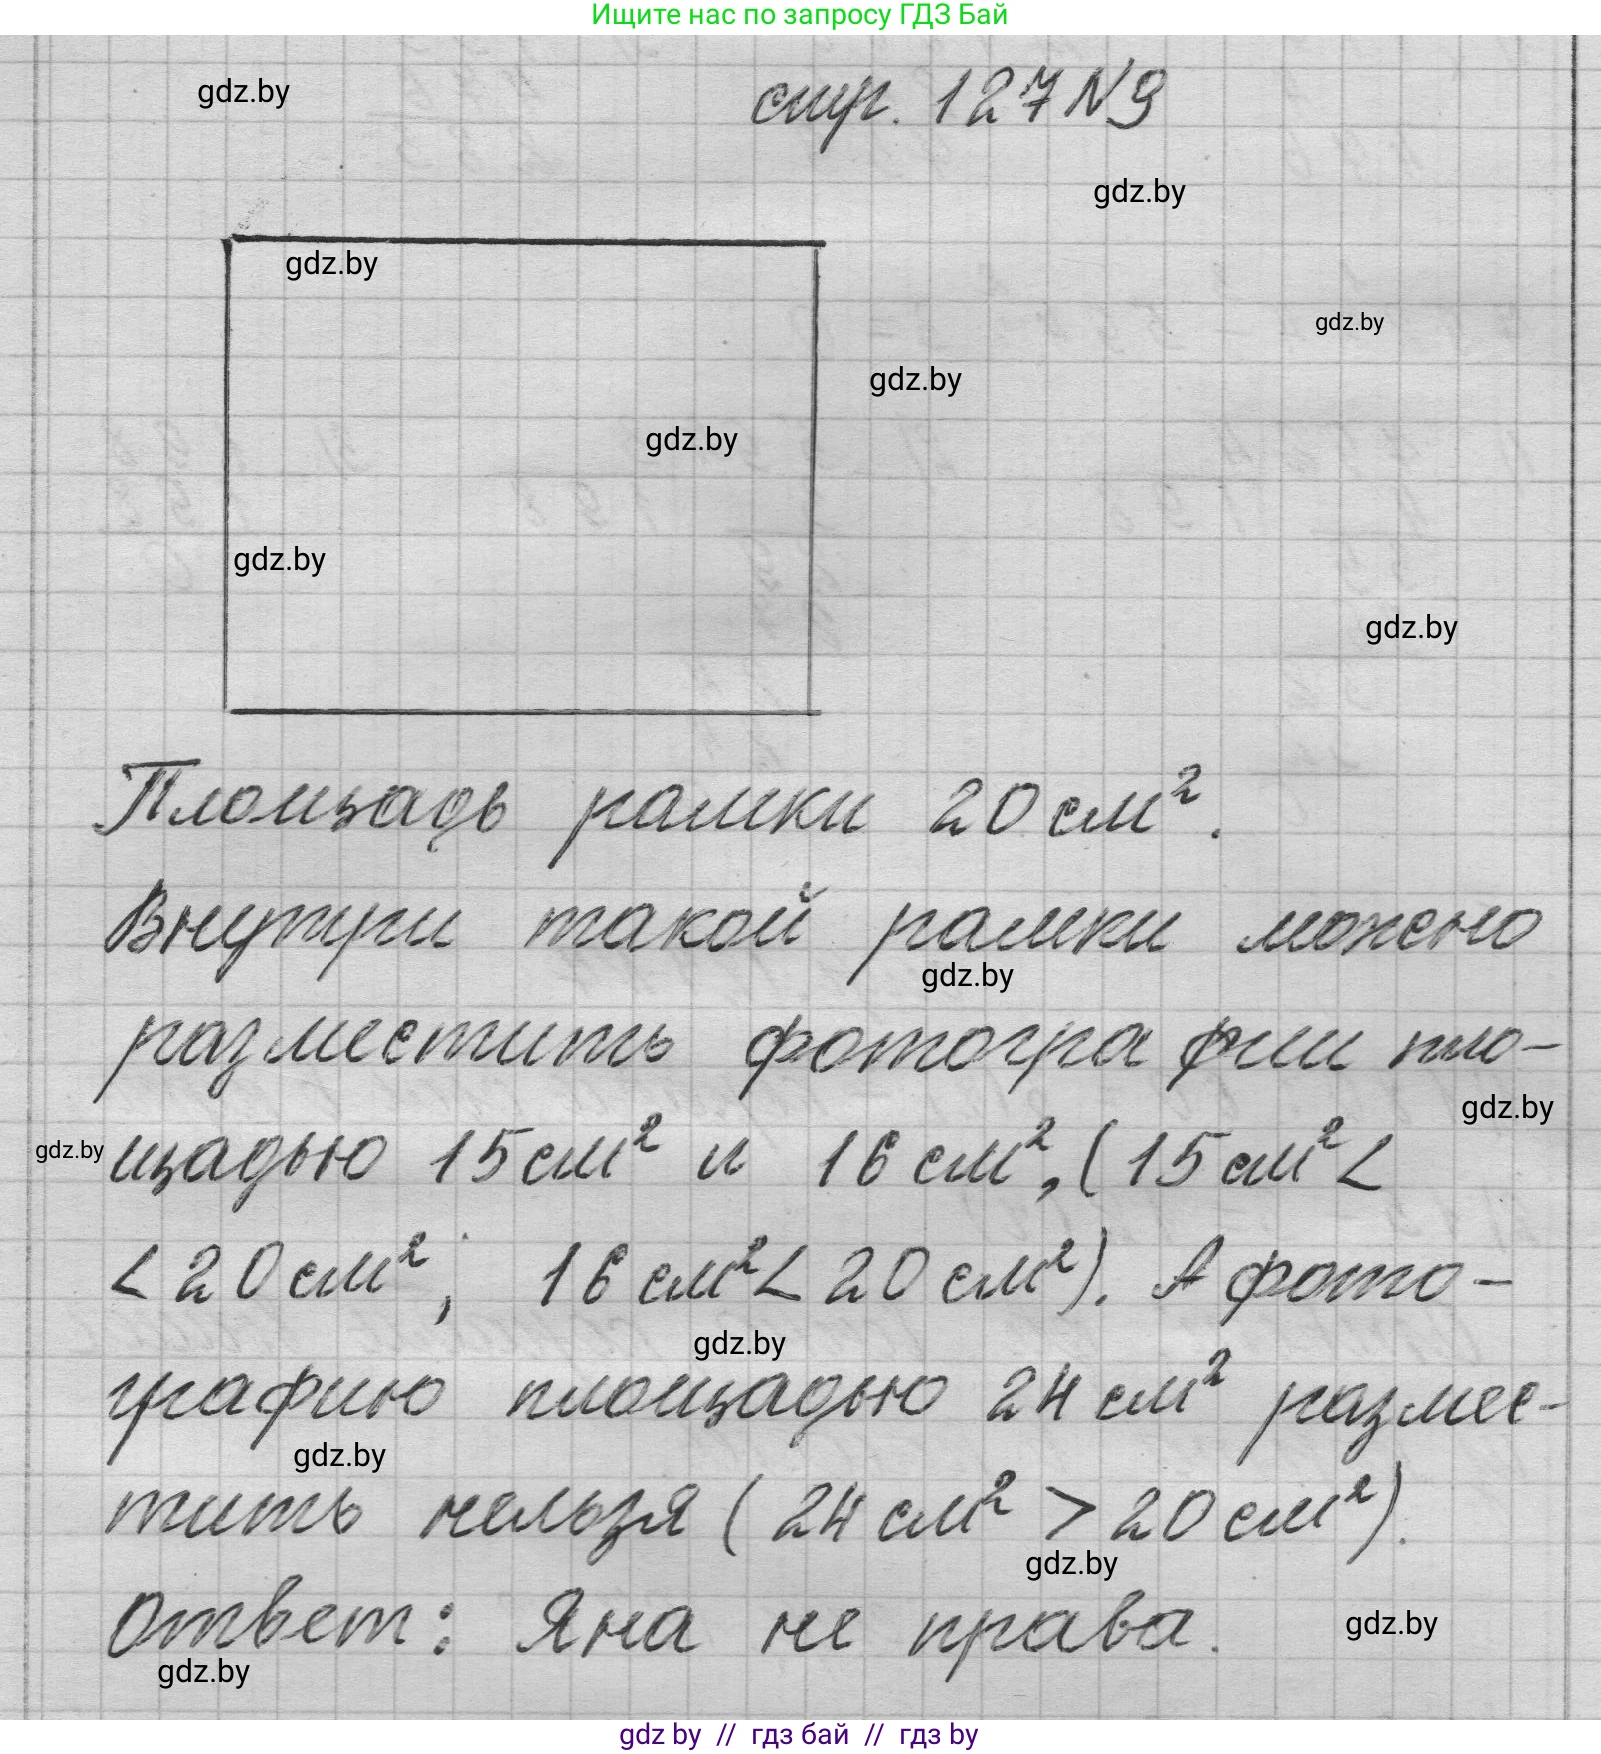 Ищите нас по запросу ГДЗ Бай
gdz.by
стр. 127 №9
gdz.by
gdz.by
gdz.by
gdz.by
gdz.by
gdz.by
gdz.by
Площадь рамки 20 см².
Внутри такой рамки можно
gdz.by
разместить фотографии пло-
gdz.by
gdz.by
щадью 15 см² и 16 см², (15 см² <
< 20 см²; 16 см² < 20 см²). А фото-
gdz.by
графию площадью 24 см² размес-
gdz.by
тить нельзя (24 см² > 20 см²).
gdz.by
Ответ: Яна не права.
gdz.by
gdz.by
gdz by // гдз бай // гдз by